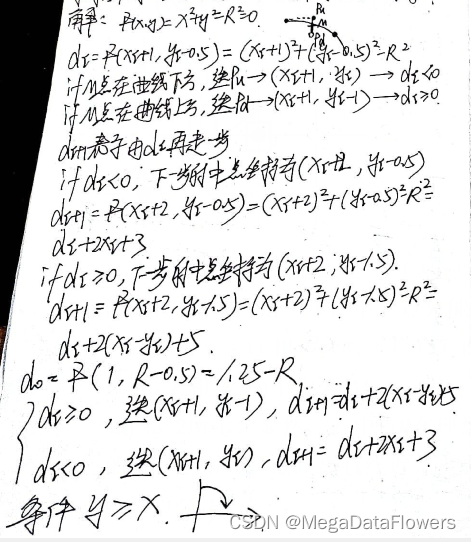 解: F(x,y)=x²+y²-R²=0.
Pu
M
Pd
di=F(xi+1, yi-0.5)=(xi+1)²+(yi-0.5)²-R²
if M点在曲线下方, 选Pu→(xi+1, yi)→di<0
if M点在曲线上方, 选Pd→(xi+1, yi-1)→di≥0.
di+1等于由di再走一步
if di<0, 下一步的中点坐标为(xi+2, yi-0.5)
di+1=F(xi+2, yi-0.5)=(xi+2)²+(yi-0.5)²-R²=
di+2xi+3
if di≥0, 下一步的中点坐标为(xi+2, yi-1.5).
di+1=F(xi+2, yi-1.5)=(xi+2)²+(yi-1.5)²-R²=
di+2(xi-yi)+5.
d0=F(1, R-0.5)=1.25-R
di≥0, 选(xi+1, yi-1), di+1=di+2(xi-yi)+5
di<0, 选(xi+1, yi), di+1=di+2xi+3
条件 y≥x.
CSDN @MegaDataFlowers